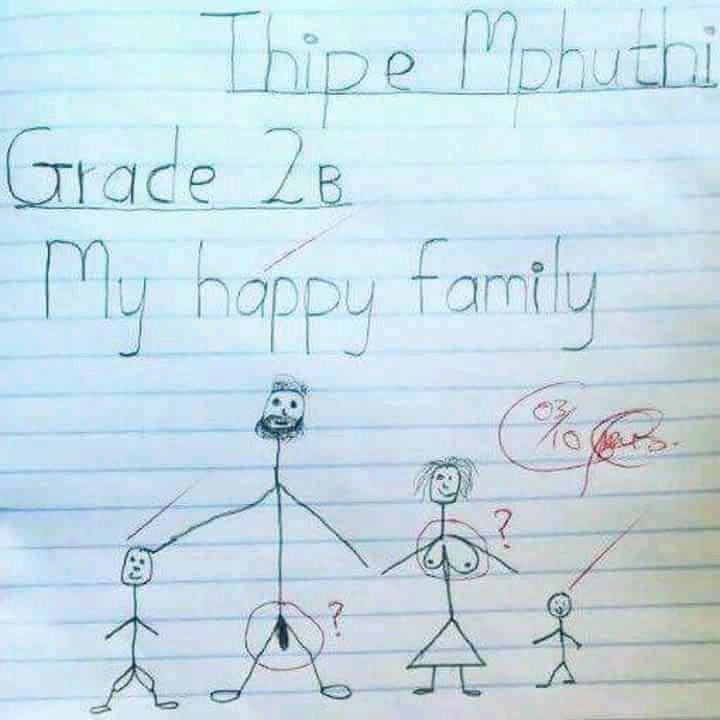 Thipe Mphuthi
Grade 2B
My happy family
03/10
?
?